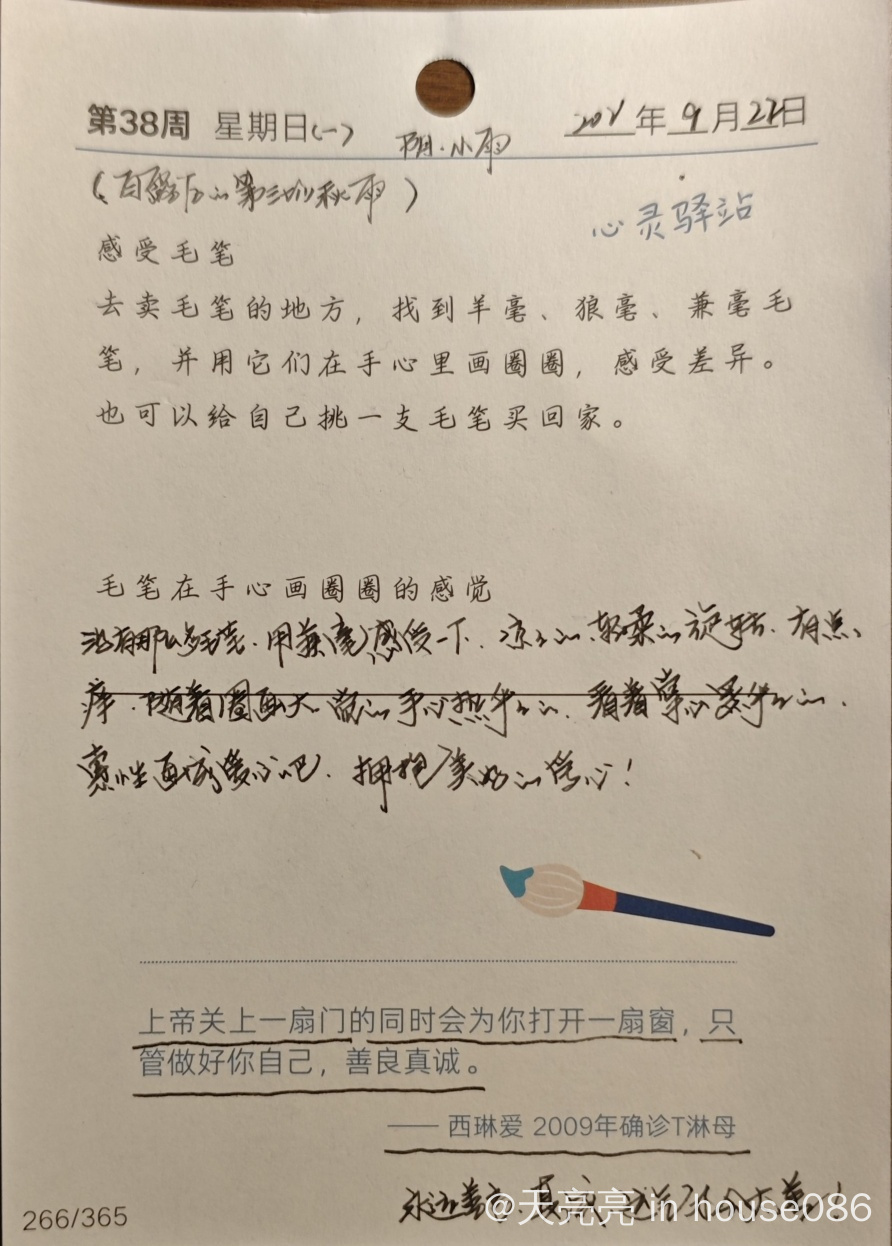 第38周 星期日(一) 阴·小雨 年9月22日
心灵驿站
感受毛笔
去卖毛笔的地方，找到羊毫、狼毫、兼毫毛
笔，并用它们在手心里画圈圈，感受差异。
也可以给自己挑一支毛笔买回家。
毛笔在手心画圈圈的感觉
没有那么多毛笔．用兼毫感受一下．凉凉的．轻柔的旋转．有点
痒．随着圈画大 手心热乎乎的．看着掌心
索性画成爱心吧．拥抱美好的
上帝关上一扇门的同时会为你打开一扇窗，只
管做好你自己，善良真诚。
—— 西琳爱 2009年确诊T淋母
永远善良．真诚
@天亮亮 in house086
266/365